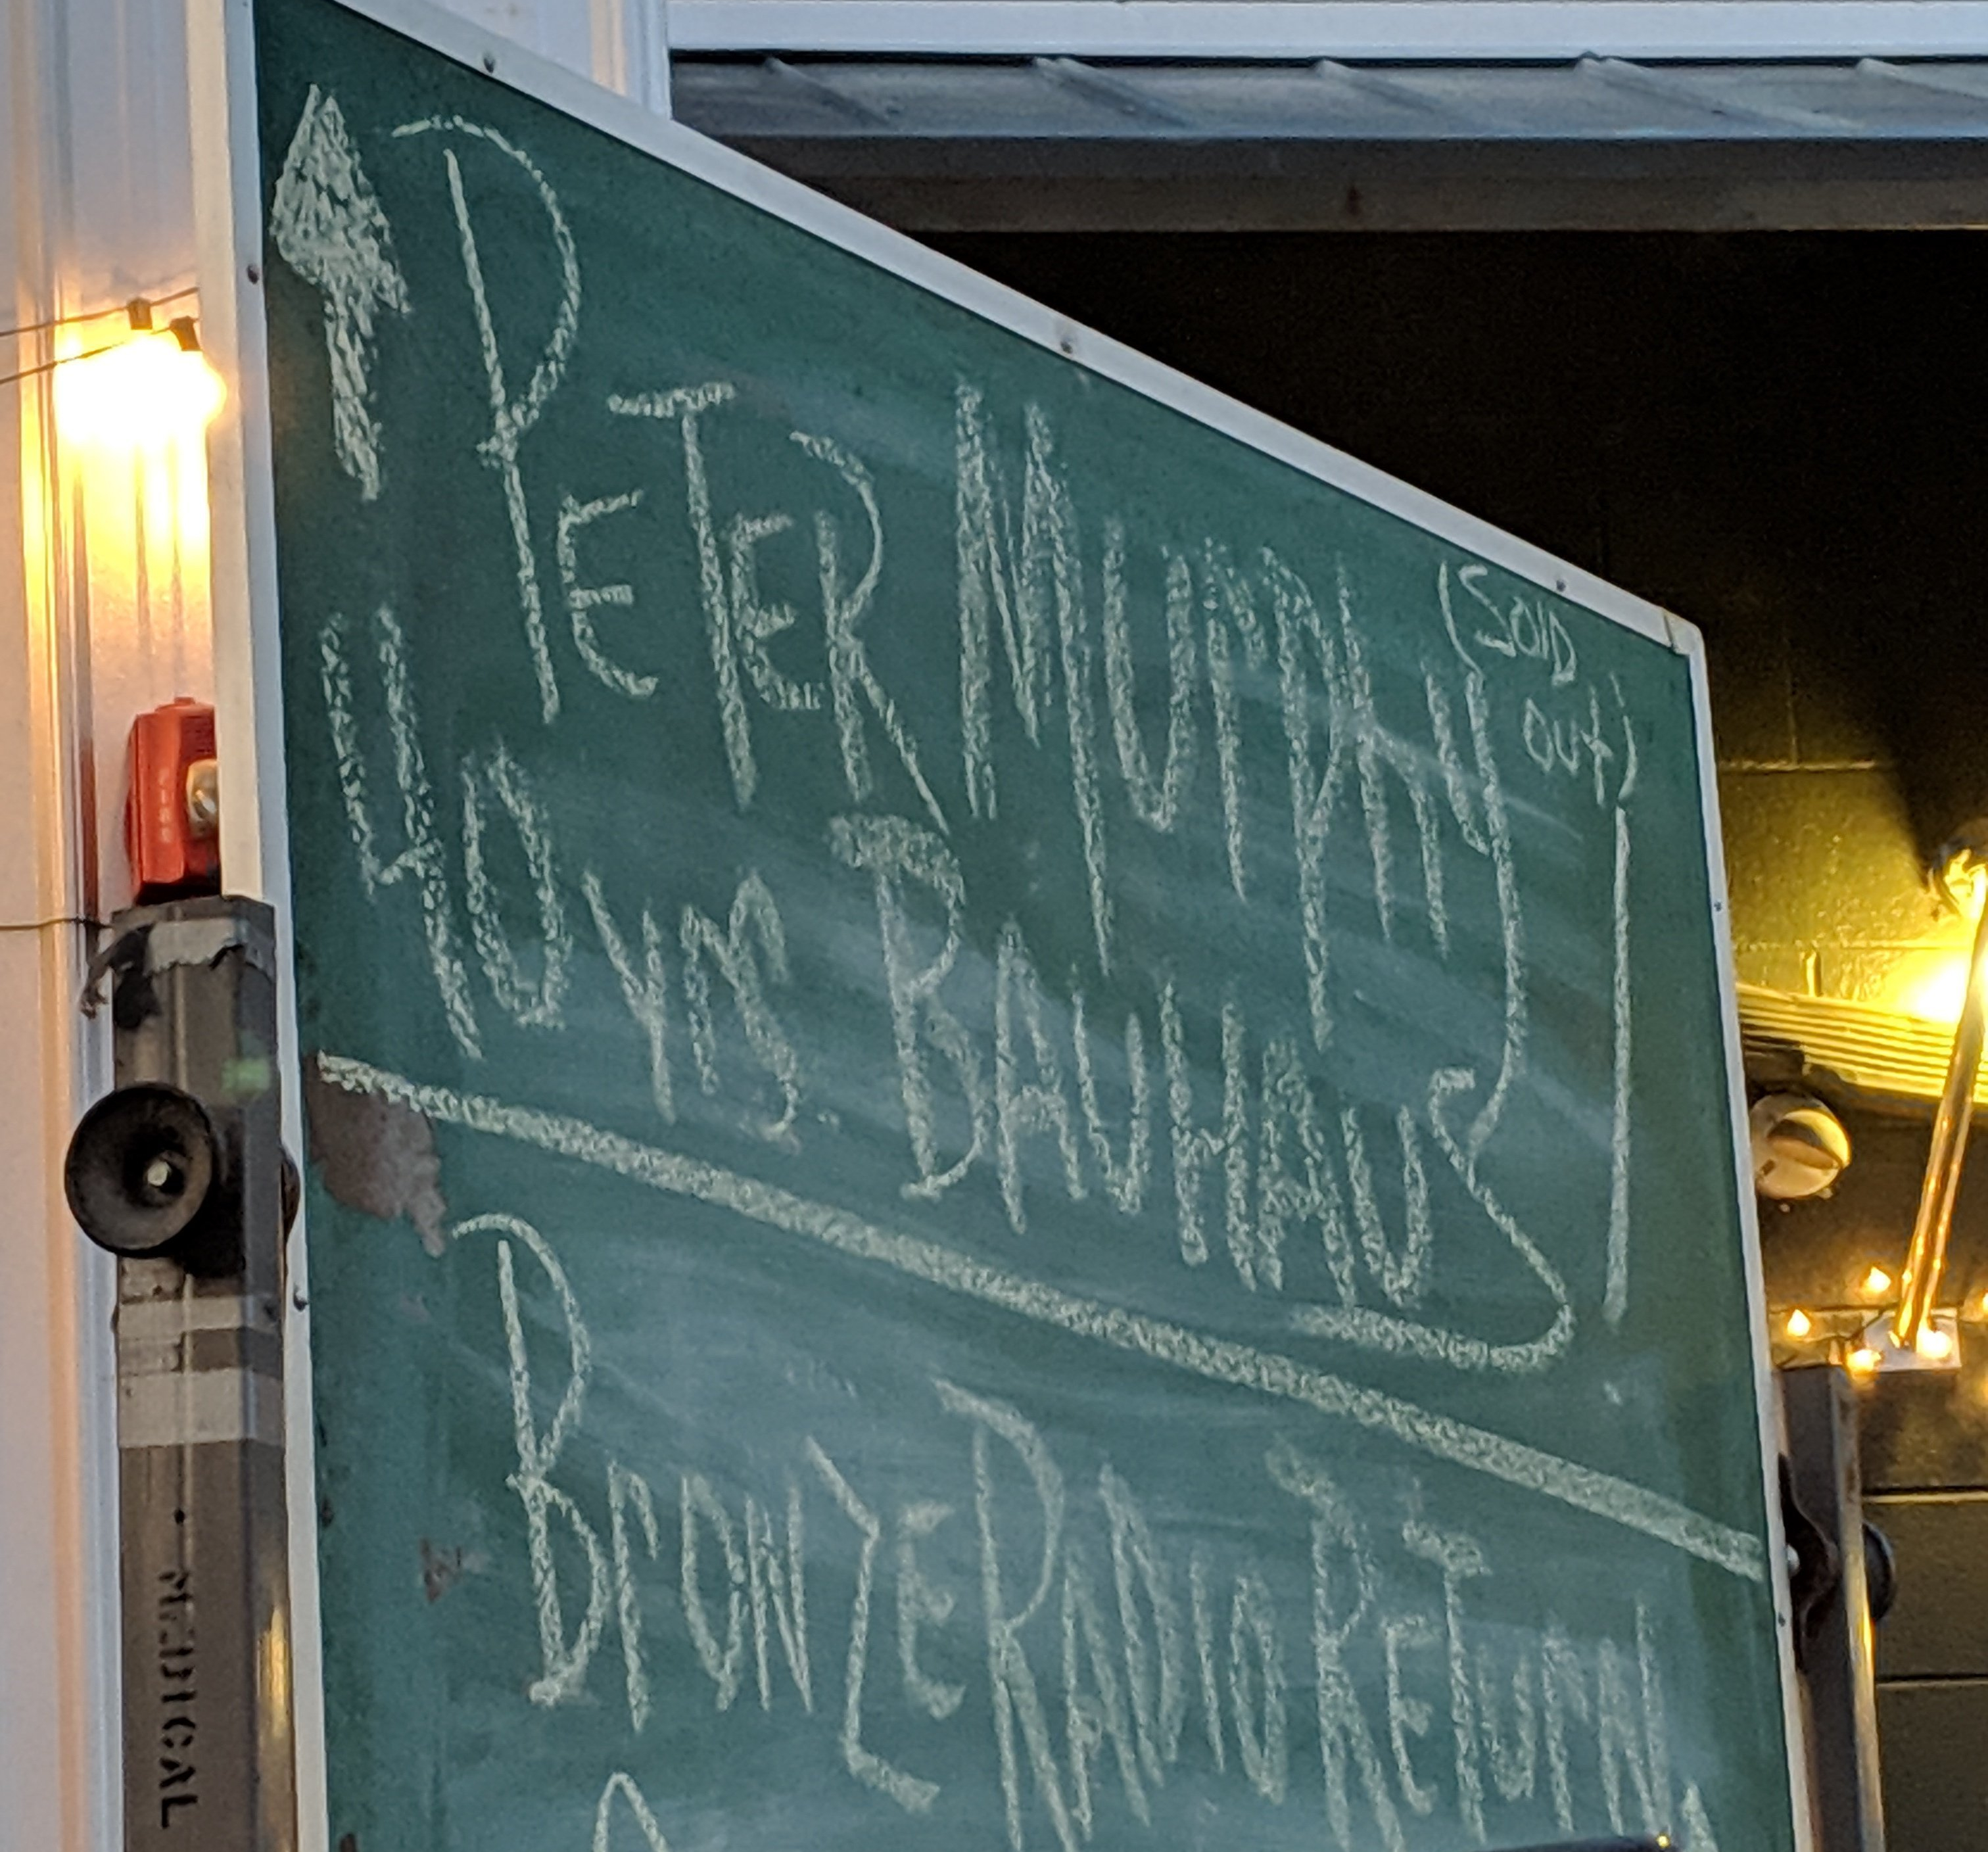 PETER MURPHY (SOLD
OUT)
40 YrS. BAUHAUS
BronZE RADIO RETurN
MEDICAL